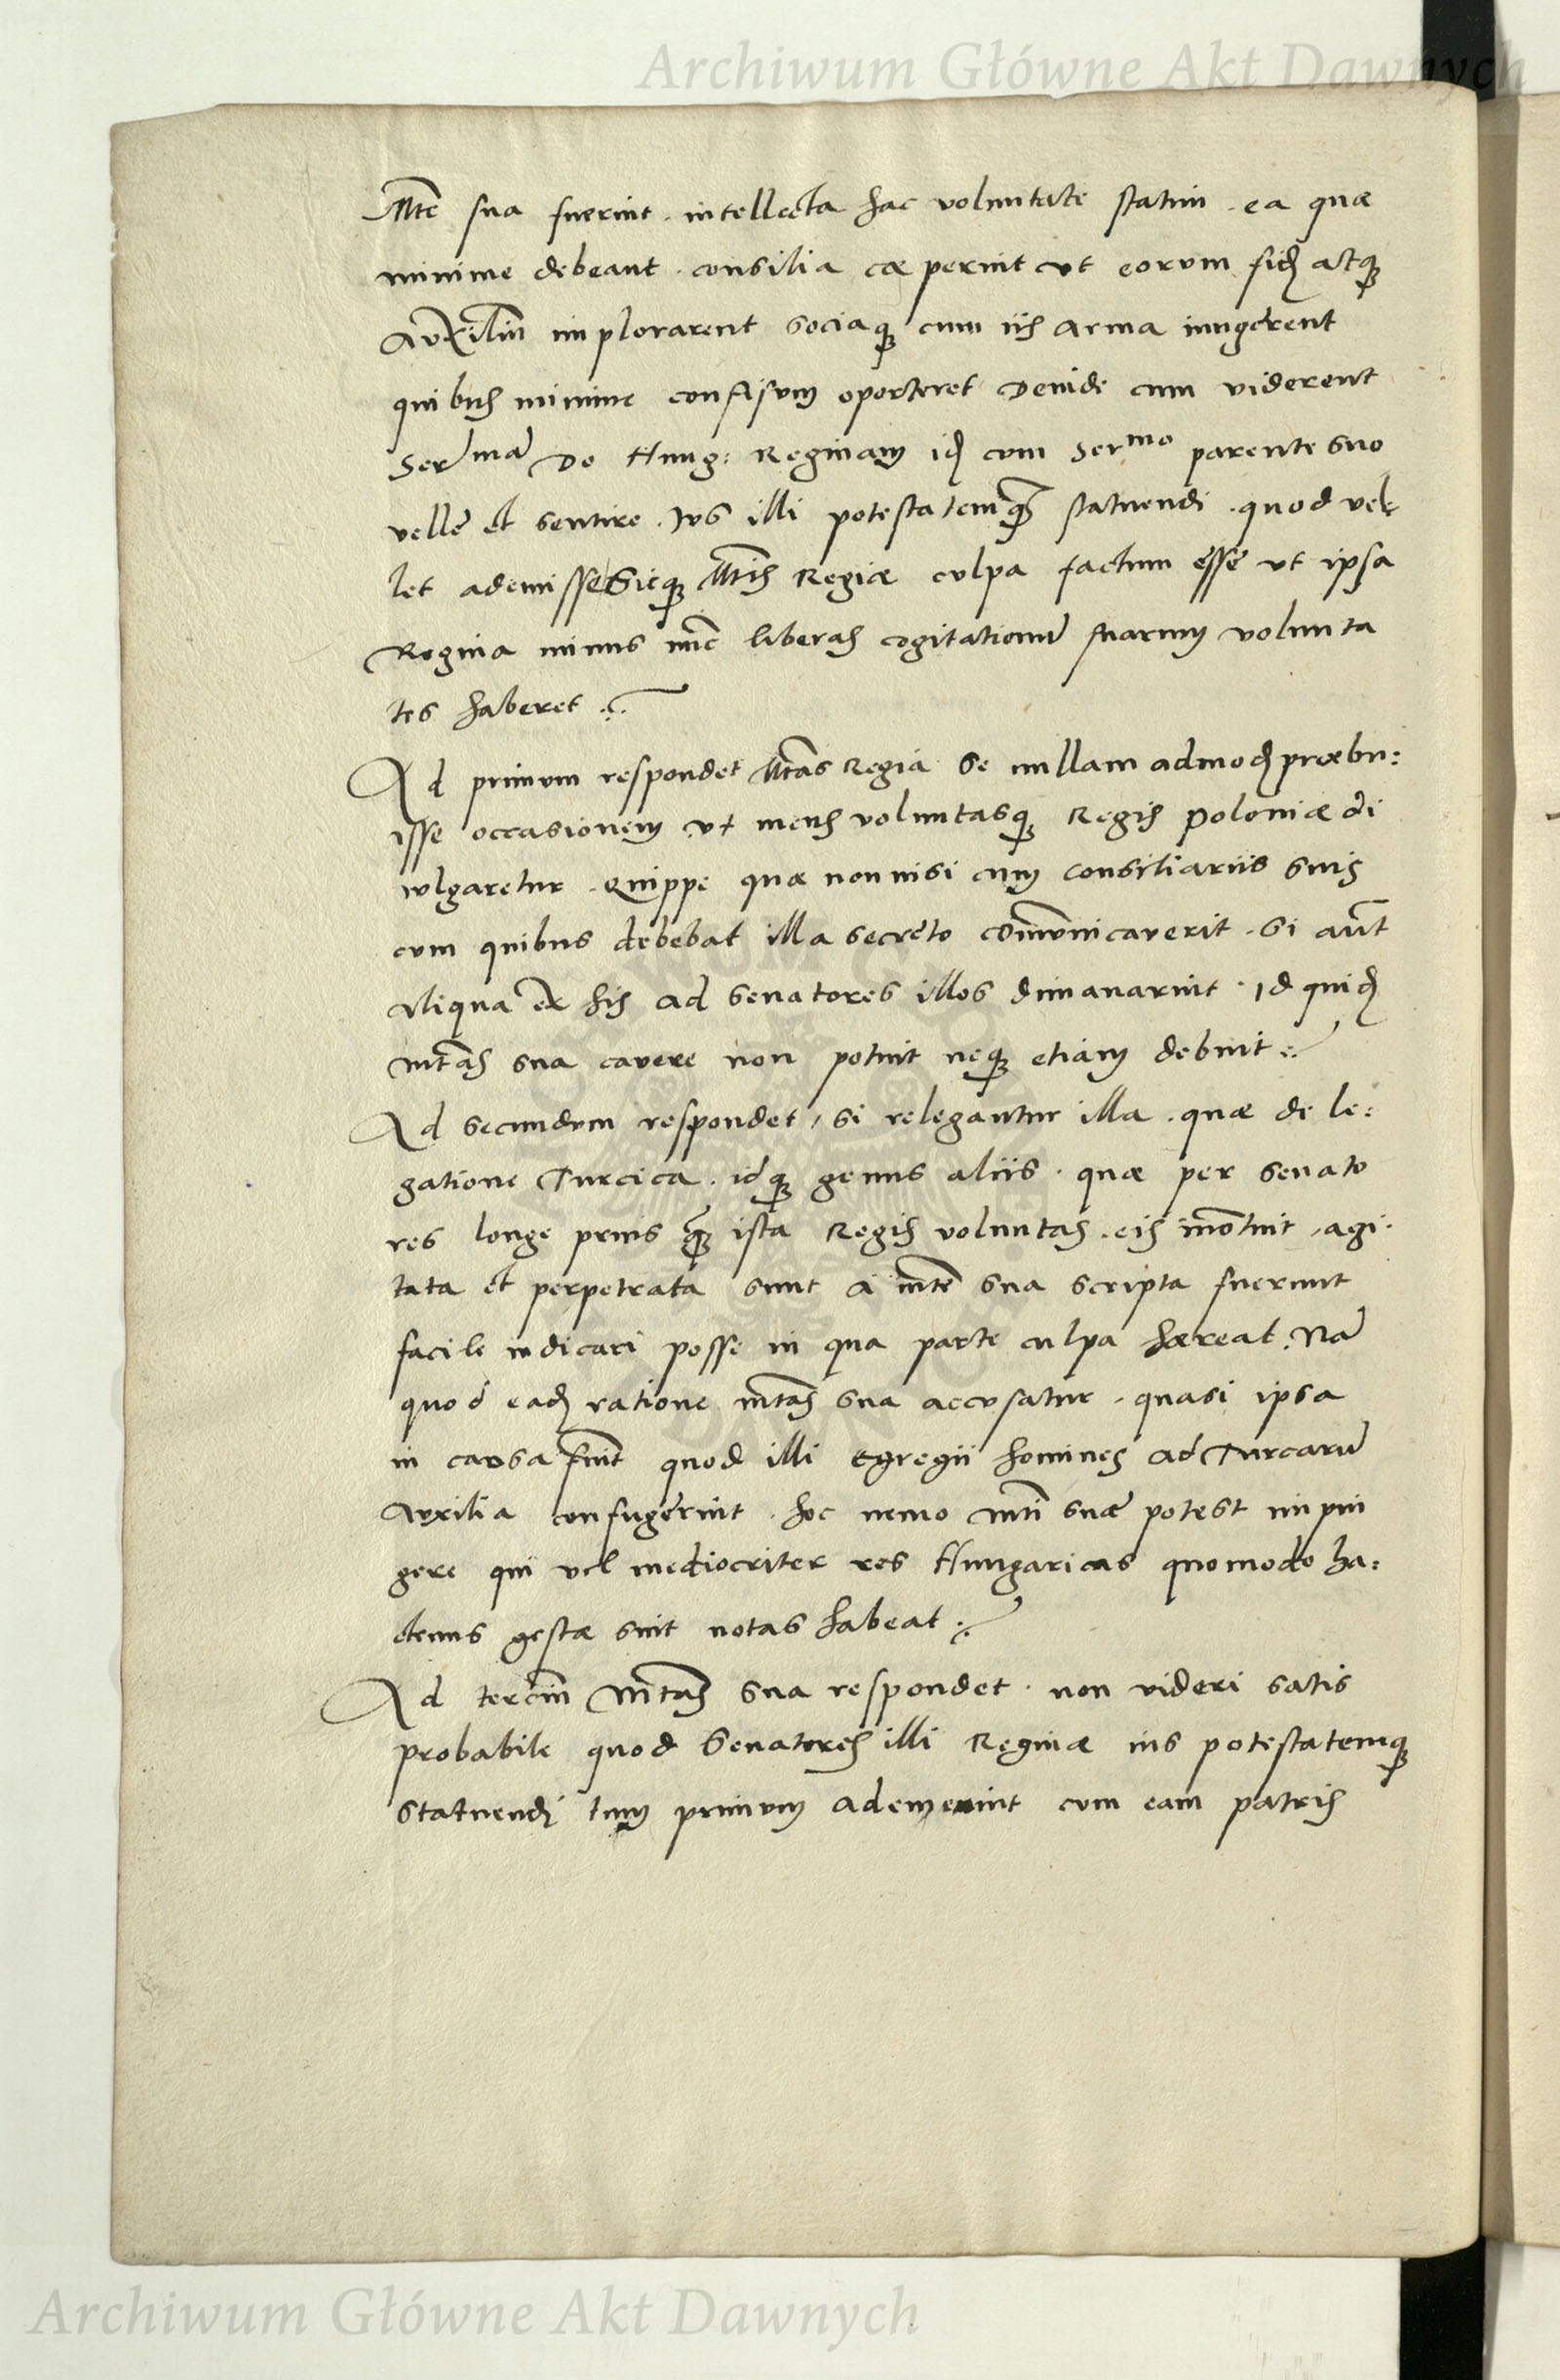 Archiwum Główne Akt Dawnych
Mte sua fuerint. intellecta hac voluntate statim. ea quæ
minime debeant. consilia cæperint vt eorum fid atq
Auxiliũ implorarent sociaq cum iis arma iungerent
quibus minime confisum oporteret Deinde cum viderent
Sermã Do Hung: Reginam id cum Sermo parente suo
velle et sentire. Jus illi potestatemq statuendi. quod vel
let ademisse Sicq Mtis Regiæ culpa factum esse vt ipsa
Regina minus nũc liberas cogitationũ suarum volunta
tes haberet.
Ad primum respondet Mtas Regia se nullam admod præbu:
isse occasionem vt mens voluntasq Regis Poloniæ di
vulgaretur. Quippe quæ non nisi cum consiliariis suis
cum quibus debebat illa secreto cõmunicaverit. Si aũt
Aliqua ex his ad senatores illos dimanarint. Id quid
mtas sua cavere non potuit neq etiam debuit.
Ad secundum respondet, si relegantur illa. quæ de le:
gatione Turcica. idq genus aliis. quæ per senato
res longe prius q̃ ista Regis voluntas. eis inõtuit, agi.
tata et perpetrata sunt a mte sua scripta fuerunt
facile iudicari posse in qua parte culpa hæreat. Nã
quod ead ratione mtas sua accusatur. quasi ipsa
in causa fuit quod illi egregii homines ad Turcarũ
Auxilia confugerint. hoc nemo mti suæ potest impin
gere qui vel mediocriter res Hungaricas quomodo ha:
ctenus gestæ sint notas habeat.
Ad terciũ Mtas sua respondet. non videri satis
probabile quod Senatores illi Reginæ ius potestatemq
Statuendi tum primum ademerint cum eam patris
Archiwum Główne Akt Dawnych